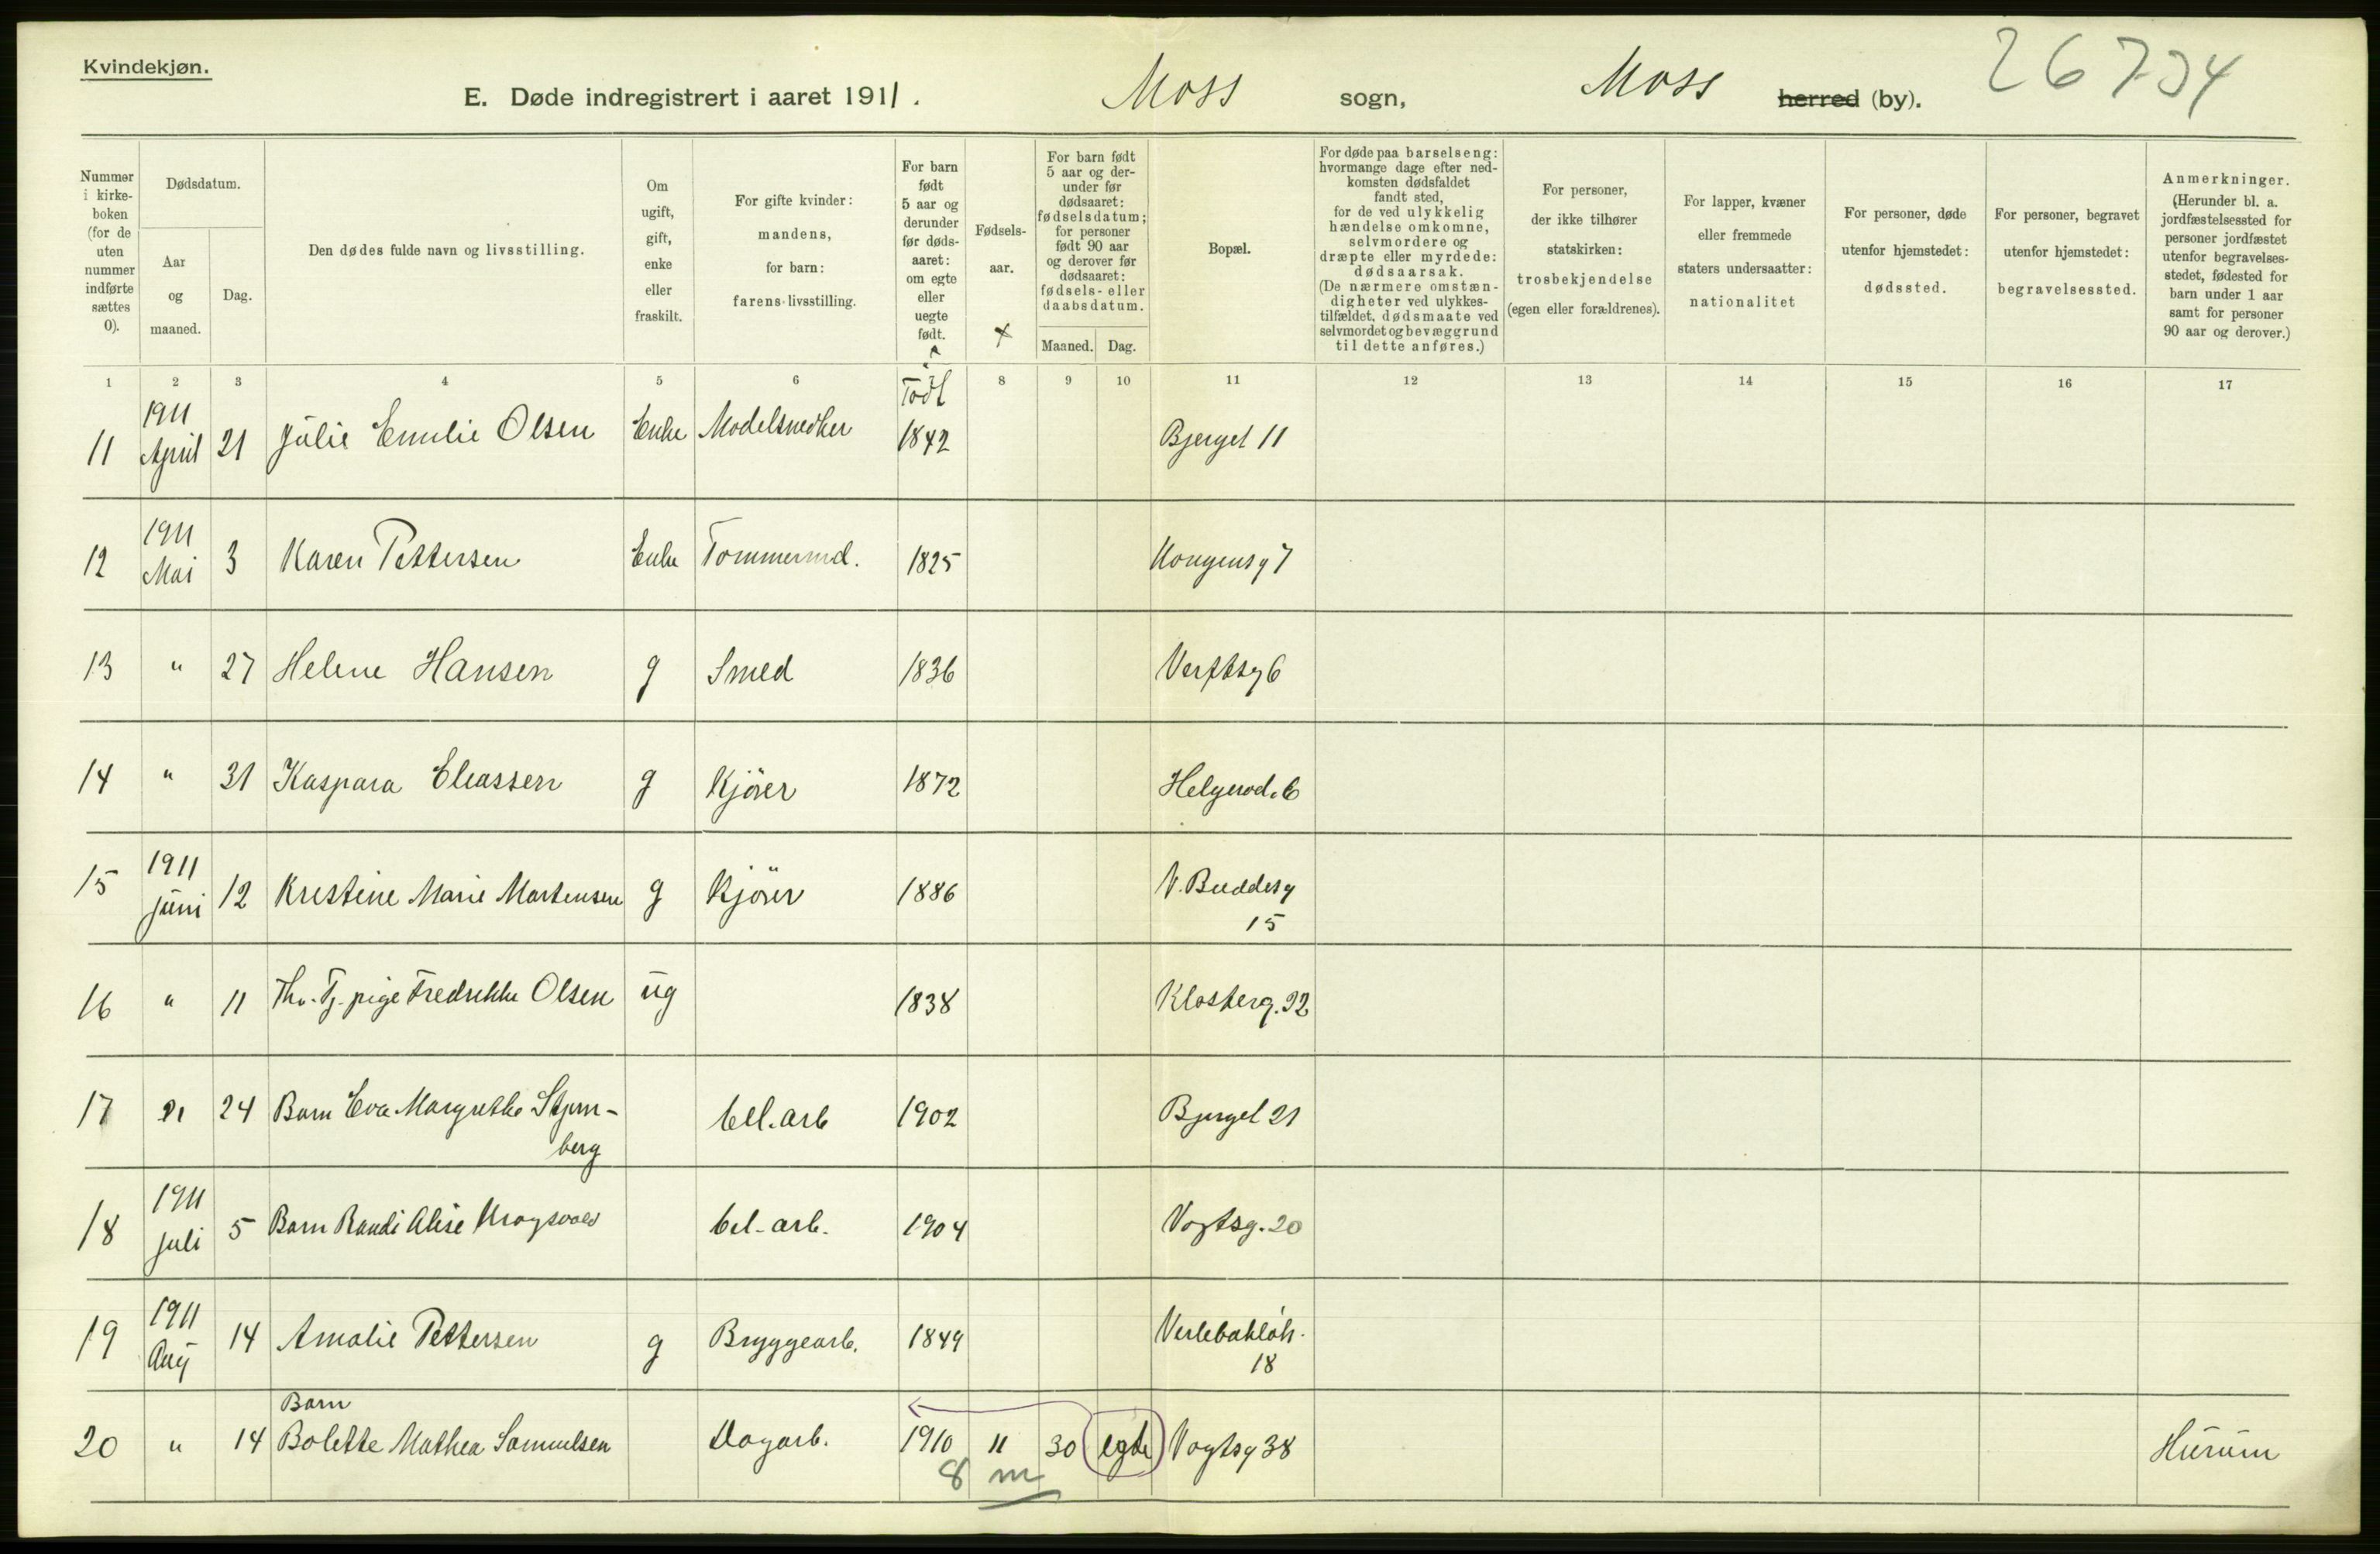 Kvindekjøn.
E. Døde indregistrert i aaret 1911. Moss sogn, Moss herred (by). 26734
Nummer i kirke-boken (for de uten nummer indførte sættes 0).
Dødsdatum.
Aar og maaned.
Dag.
Den dødes fulde navn og livsstilling.
Om ugift, gift, enke eller fraskilt.
For gifte kvinder: mandens, for barn: farens livsstilling.
For barn født 5 aar og derunder før døds-aaret: om egte eller uegte født.
Fødsels-aar.
For barn født 5 aar og der-under før dødsaaret: fødselsdatum; for personer født 90 aar og derover før dødsaaret: fødsels- eller daabsdatum.
Maaned. Dag.
Bopæl.
For døde paa barselseng: hvormange dage efter ned-komsten dødsfaldet fandt sted, for de ved ulykkelig hændelse omkomne, selvmordere og dræpte eller myrdede: dødsaarsak. (De nærmere omstæn-digheter ved ulykkes-tilfældet, dødsmaate ved selvmordet og bevæggrund til dette anføres.)
For personer, der ikke tilhører statskirken: trosbekjendelse (egen eller forældrenes).
For lapper, kvæner eller fremmede staters undersaatter: nationalitet
For personer, døde utenfor hjemstedet: dødssted.
For personer, begravet utenfor hjemstedet: begravelsessted.
Anmerkninger. (Herunder bl. a. jordfæstelsessted for personer jordfæstet utenfor begravelses-stedet, fødested for barn under 1 aar samt for personer 90 aar og derover.)
1 2 3 4 5 6 8 9 10 11 12 13 14 15 16 17
Født
11 1911 April 21 Julie Emilie Olsen Enke Modelsnedker 1842 Bjerget 11
12 1911 Mai 3 Karen Pettersen Enke Tømmermd. 1825 Kongensg 7
13 " 27 Helene Hansen g Smed 1836 Verftsg 6
14 " 31 Kaspara Eliassen g Kjörer 1872 Helgerød. 6
15 1911 juni 12 Kristine Marie Martensen g Kjörer 1886 V. Buddesg 15
16 " 11 Fhv. Tj. pige Fredrikke Olsen ug 1838 Klosterg. 32
17 " 24 Barn Eva Margrethe Stjern-berg cell. arb 1902 Bjerget 21
18 1911 juli 5 Barn Randi Alise cel. arb. 1904 Vogtsg. 20
19 1911 Aug 14 Amalie Pettersen g Bryggearb. 1849 18
20 " 14 Barn Bolette Mathea Samuelsen Dagarb. 1910 11 30 egte Vogtsg 38 Hurum
8 m